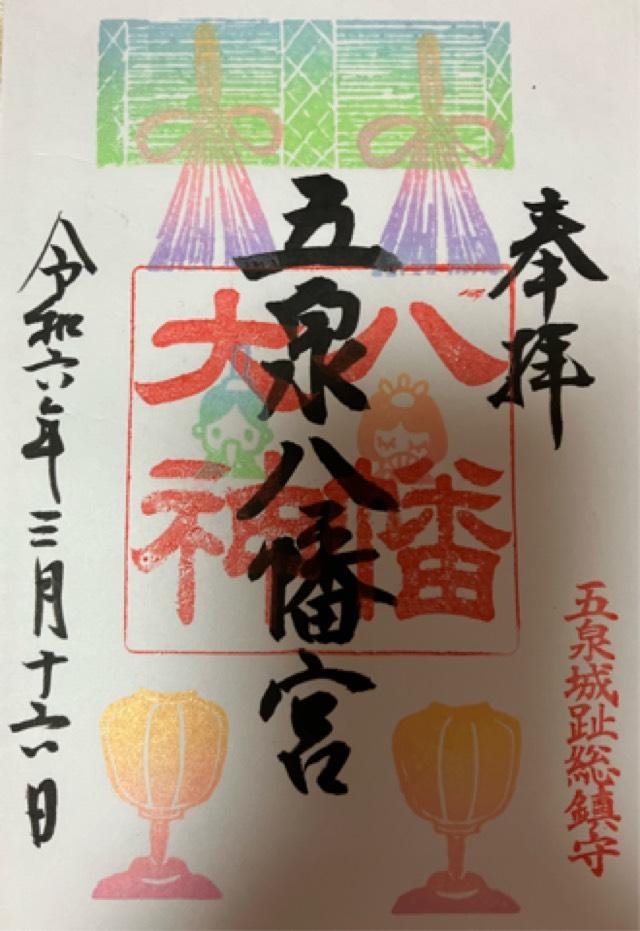 奉拝
五泉城趾総鎮守
五泉八幡宮
八幡
大神
令和六年三月十六日